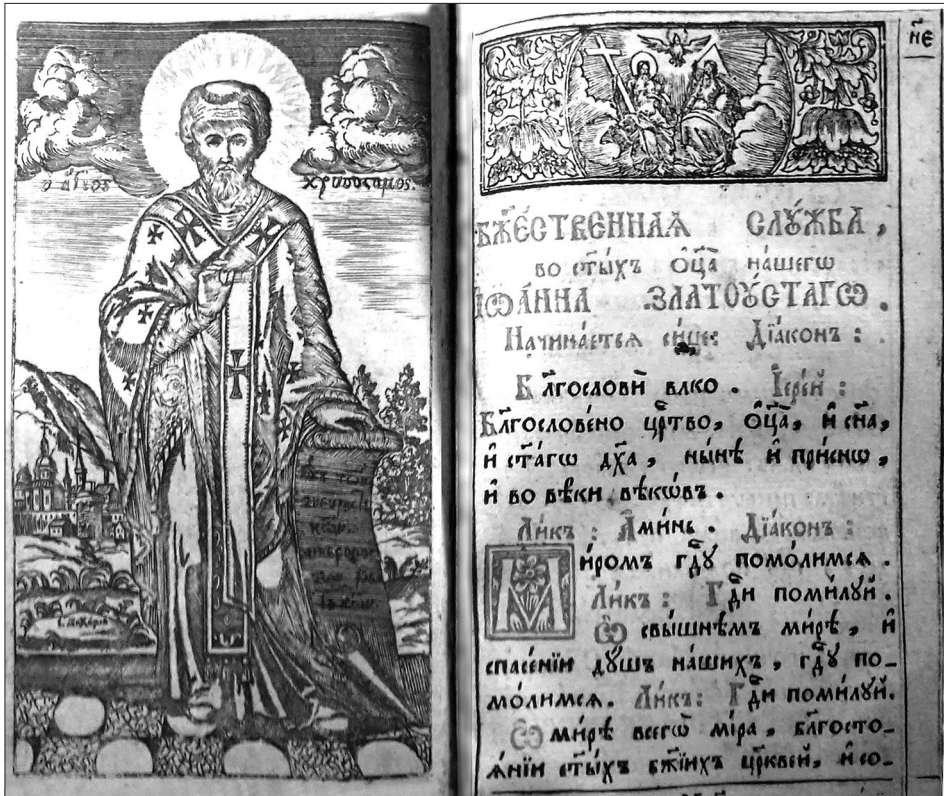 ὁ ἅγιος
χρυσοστομος.
н҃є
БЖ҃Е́СТВЕННАѦ СЛꙊ́ЖБА,
во ст҃ы́хъ ѻ҆ц҃а̀ на́шегѡ
І҆Ѡа́ННА ЗЛАТОꙊ́СТАГѠ.
Начина́етсѧ си́це: Дїа́конъ:
Бл҃гословѝ влⷣко. І҆ере́й:
Бл҃гослове́но црⷭ҇тво, ѻ҆ц҃а̀, и҆ сн҃а,
и҆ ст҃а́гѡ дх҃а, ны́нѣ и҆ при́снѡ,
и҆ во вѣ́ки вѣкѡ́въ.
Ли́къ: А҆ми́нь. Дїа́конъ:
Ми́ромъ гдⷭ҇ꙋ помо́лимсѧ.
Ли́къ: Гдⷭ҇и поми́лꙋй.
Ѽ свы́шнѣмъ ми́рѣ, и҆
спасе́нїи дꙋ́шъ на́шихъ, гдⷭ҇ꙋ по-
мо́лимсѧ. Ли́къ: Гдⷭ҇и поми́лꙋй.
Ѽ ми́рѣ всегѡ̀ мі́ра, бл҃госто-
ѧ́нїи ст҃ы́хъ бж҃їихъ цр҃кве́й, и҆ со-